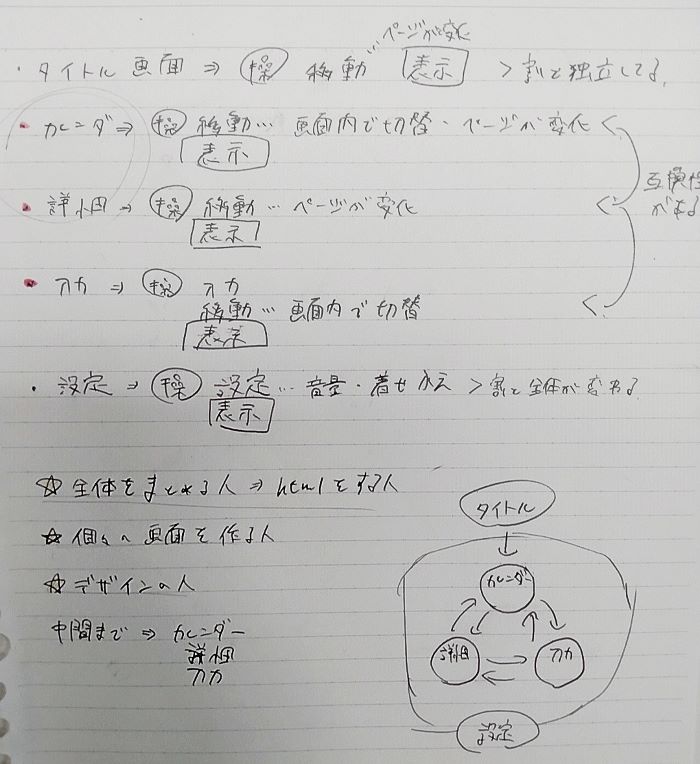 ページが変化
・タイトル画面 ⇒ 操 移動… 表示 > 割と独立してる。
・カレンダ ⇒ 操 移動… 画面内で切替・ページが変化 <
表示
互換性がある
・詳細 ⇒ 操 移動… ページが変化 <
表示
・入力 ⇒ 操 入力
移動… 画面内で切替 <
表示
・設定 ⇒ 操 設定… 音量・着せかえ > 割と全体が変わる
表示
☆ 全体をまとめる人 ⇒ htmlをする人
☆ 個々の画面を作る人
☆ デザインの人
中間まで ⇒ カレンダー
詳細
入力
タイトル
カレンダー
詳細 入力
設定